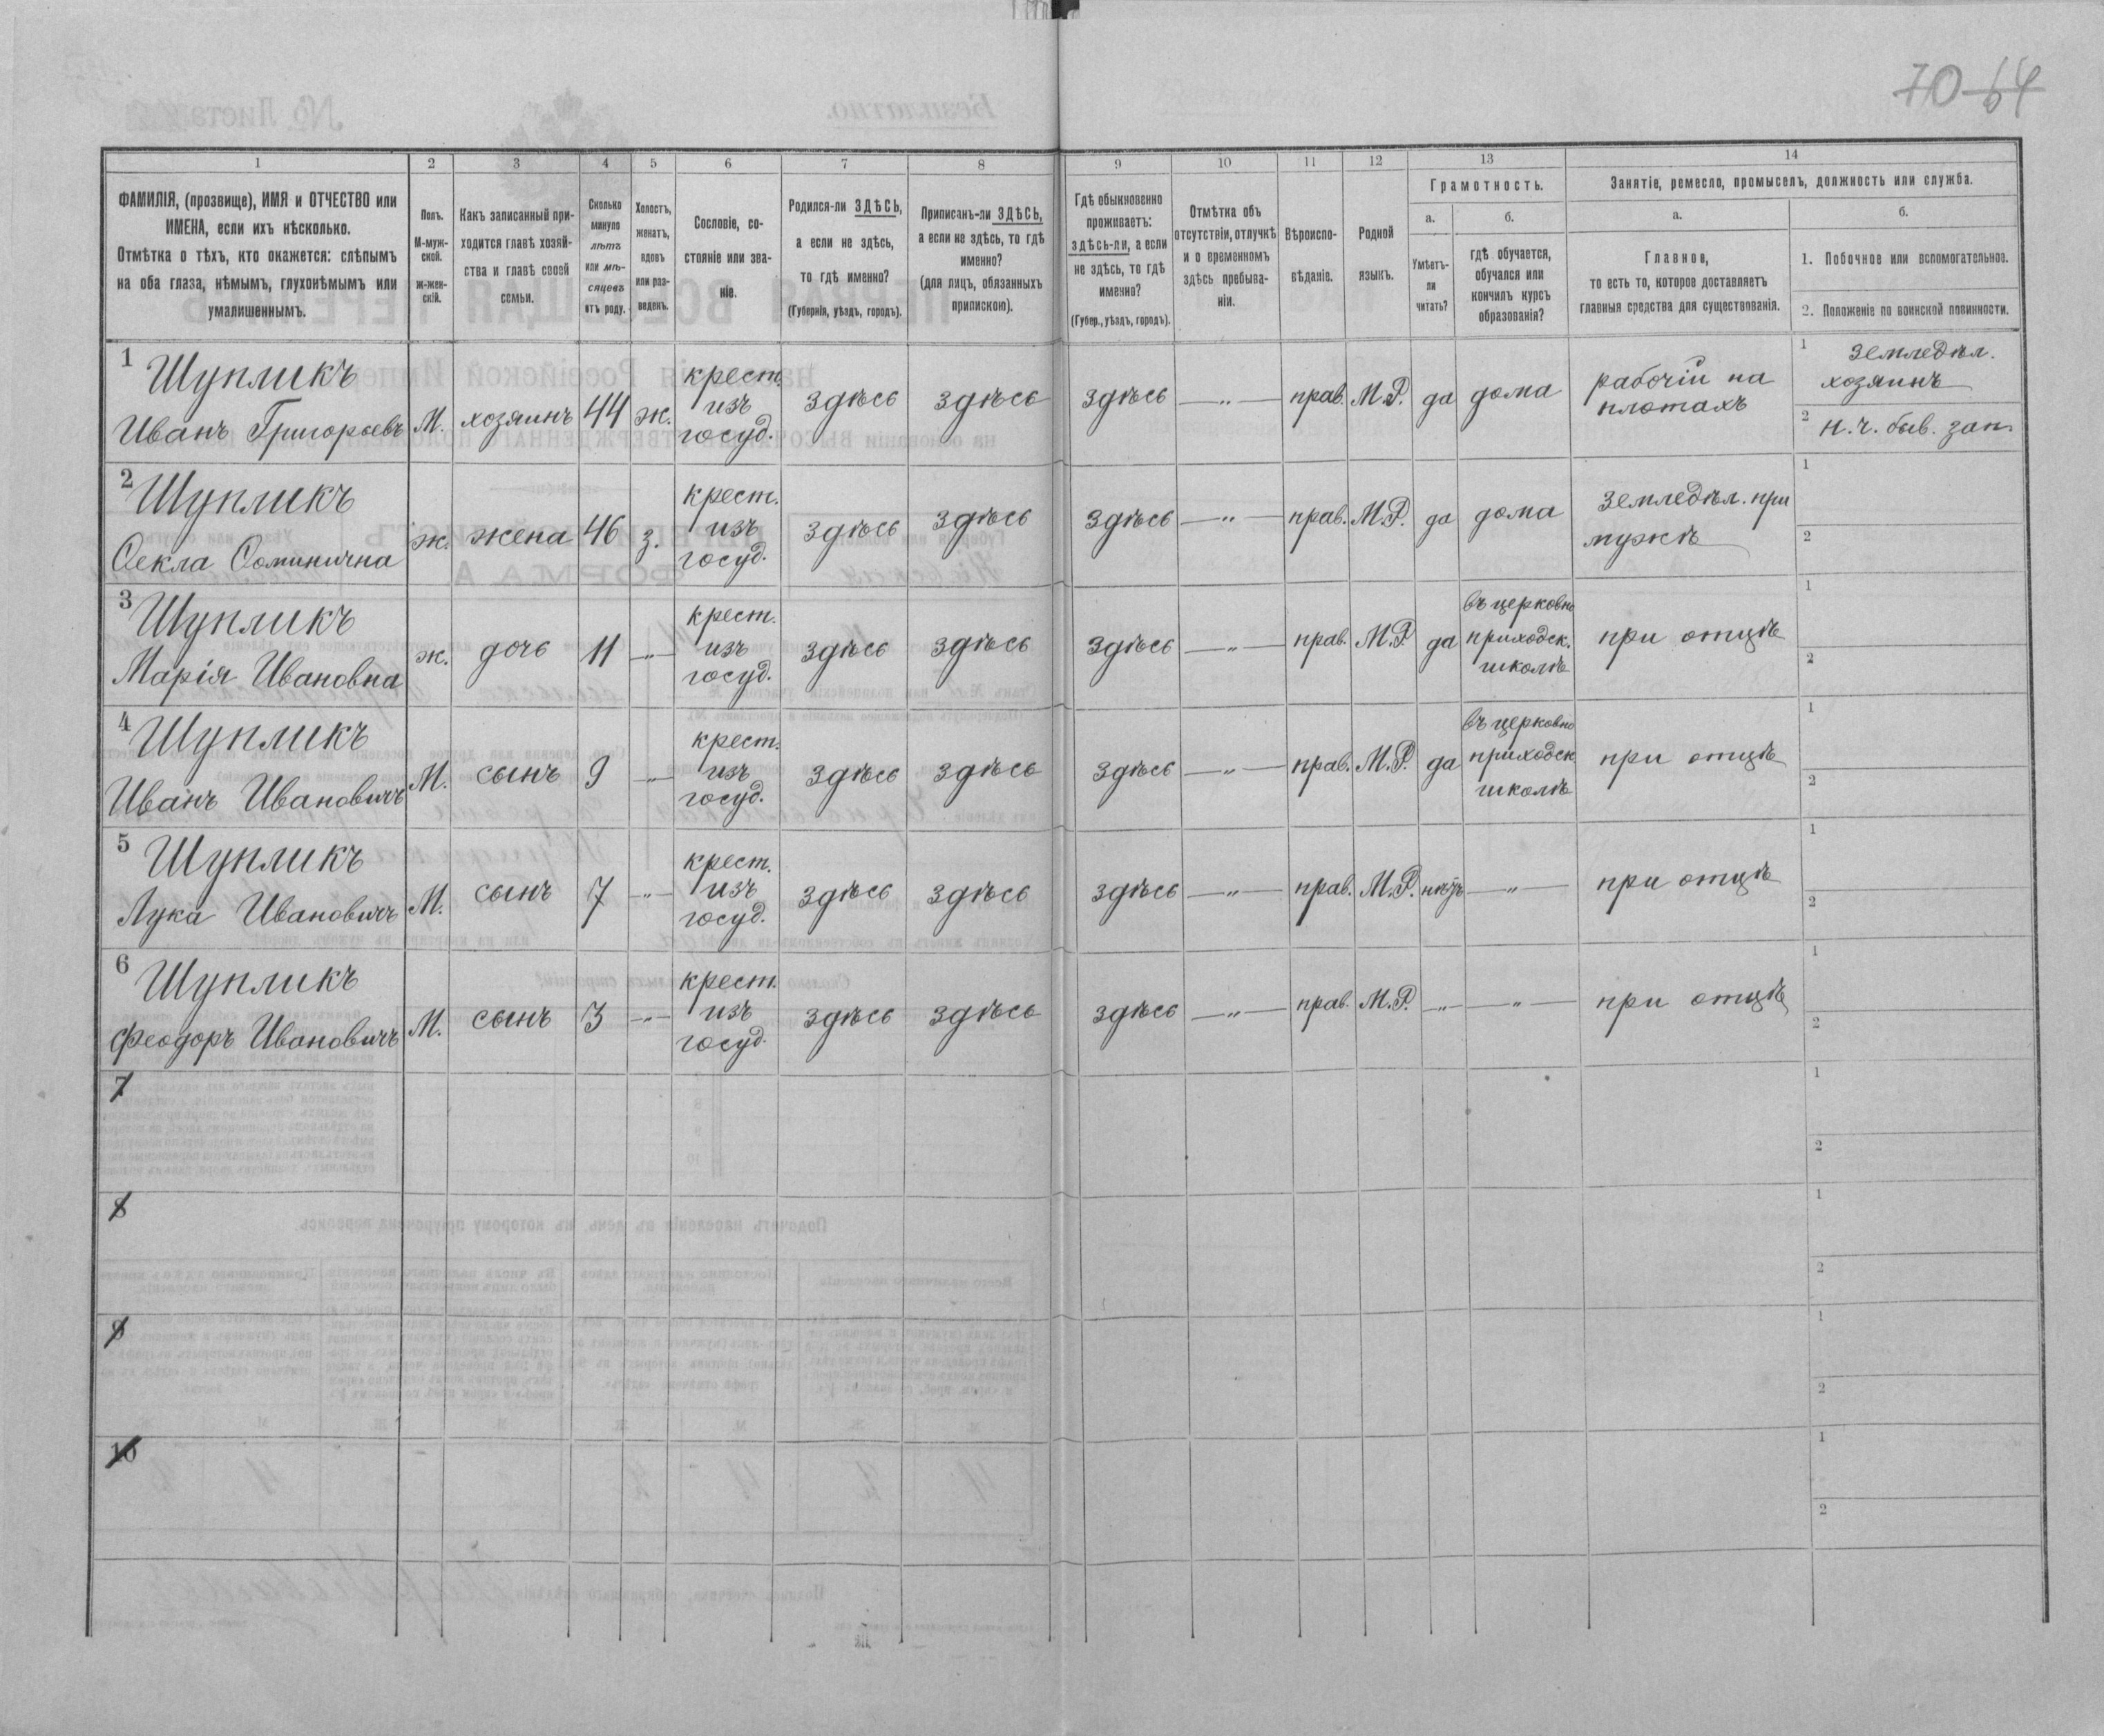 70-64
1
2
3
4
5
6
7
8
9
10
11
12
13
14
ФАМИЛІЯ, (прозвище), ИМЯ и ОТЧЕСТВО или
ИМЕНА, если ихъ нѣсколько.
Отмѣтка о тѣхъ, кто окажется: слѣпымъ
на оба глаза, нѣмымъ, глухонѣмымъ или
умалишеннымъ.
Полъ.
М-муж-
ской.
ж-жен-
скій.
Какъ записанный при-
ходится главѣ хозяй-
ства и главѣ своей
семьи.
Сколько
минуло
лѣтъ
или мѣ-
сяцевъ
отъ роду.
Холостъ,
женатъ,
вдовъ
или раз-
веденъ.
Сословіе, со-
стояніе или зва-
ніе.
Родился-ли ЗДѢСЬ,
а если не здѣсь,
то гдѣ именно?
(Губернія, уѣздъ, городъ).
Приписанъ-ли ЗДѢСЬ,
а если не здѣсь, то гдѣ
именно?
(для лицъ, обязанныхъ
припискою).
Гдѣ обыкновенно
проживаетъ:
здѣсь-ли, а если
не здѣсь, то гдѣ
именно?
(Губер., уѣздъ, городъ).
Отмѣтка объ
отсутствіи, отлучкѣ
и о временномъ
здѣсь пребыва-
ніи.
Вѣроиспо-
вѣданіе.
Родной
языкъ.
Грамотность.
а.
Умѣетъ-
ли
читать?
б.
гдѣ обучается,
обучался или
кончилъ курсъ
образованія?
Занятіе, ремесло, промыселъ, должность или служба.
а.
Главное,
то есть то, которое доставляетъ
главныя средства для существованія.
б.
1. Побочное или вспомогательное.
2. Положеніе по воинской повинности.
1
Шупликъ
Иванъ Григорьевъ
М.
хозяинъ
44
ж.
крест.
изъ
госуд.
здѣсь
здѣсь
здѣсь
— „ —
прав.
М.Р.
да
дома
рабочій на
плотахъ
1 земледѣл.
хозяинъ
2 н.ч. быв. зап.
2
Шупликъ
Ѳекла Ѳоминична
ж.
жена
46
з.
крест.
изъ
госуд.
здѣсь
здѣсь
здѣсь
— „ —
прав.
М.Р.
да
дома
земледѣл. при
мужѣ
1
2
3
Шупликъ
Марія Ивановна
ж.
дочь
11
— „ —
крест.
изъ
госуд.
здѣсь
здѣсь
здѣсь
— „ —
прав.
М.Р.
да
въ церковно
приходск.
школѣ
при отцѣ
1
2
4
Шупликъ
Иванъ Ивановичъ
М.
сынъ
9
— „ —
крест.
изъ
госуд.
здѣсь
здѣсь
здѣсь
— „ —
прав.
М.Р.
да
въ церковно
приходск
школѣ
при отцѣ
1
2
5
Шупликъ
Лука Ивановичъ
М.
сынъ
7
— „ —
крест.
изъ
госуд.
здѣсь
здѣсь
здѣсь
— „ —
прав.
М.Р.
нѣтъ
— „ —
при отцѣ
1
2
6
Шупликъ
Феодоръ Ивановичъ
М.
сынъ
3
— „ —
крест.
изъ
госуд.
здѣсь
здѣсь
здѣсь
— „ —
прав.
М.Р.
— „ —
— „ —
при отцѣ
1
2
7
1
2
8
1
2
9
1
2
10
1
2